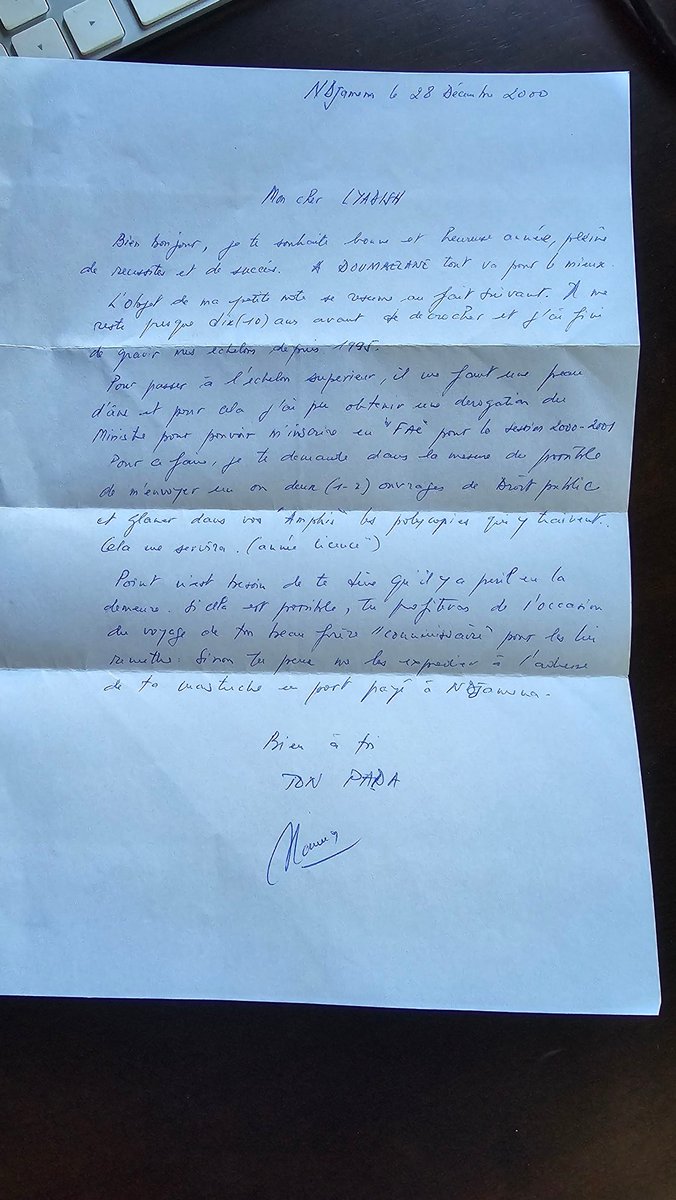 NDjamena le 28 Décembre 2000
Mon cher LYADISH
Bien bonjour, je te souhaite bonne et heureuse année, pleine
de reussites et de succès. A DOUMAZZANE tout va pour le mieux.
L'objet de ma petite note se resume au fait suivant. Il me
reste presque dix (10) ans avant de decrocher et j'ai fini
de gravir mes echelons depuis 1995.
Pour passer à l'echelon superieur, il me faut une peau
d'âne et pour cela j'ai pu obtenir une derogation du
Ministre pour pouvoir m'inscrire en "FAE" pour la session 2000-2001
Pour ce faire, je te demande dans la mesure du possible
de m'envoyer un ou deux (1-2) ouvrages de Droit public
et glaner dans vos "Amphis" les polycopies qui y traivent.
Cela me servira. (année licence)
Point n'est besoin de te dire qu'il y a peril en la
demeure. Si cela est possible, tu profiteras de l'occasion
du voyage de ton beau frère "commissaire" pour les lui
remettre. Sinon tu peux me les expedier à l'adresse
de ta en port payé à NDjamena.
Bien à toi
TON PAPA